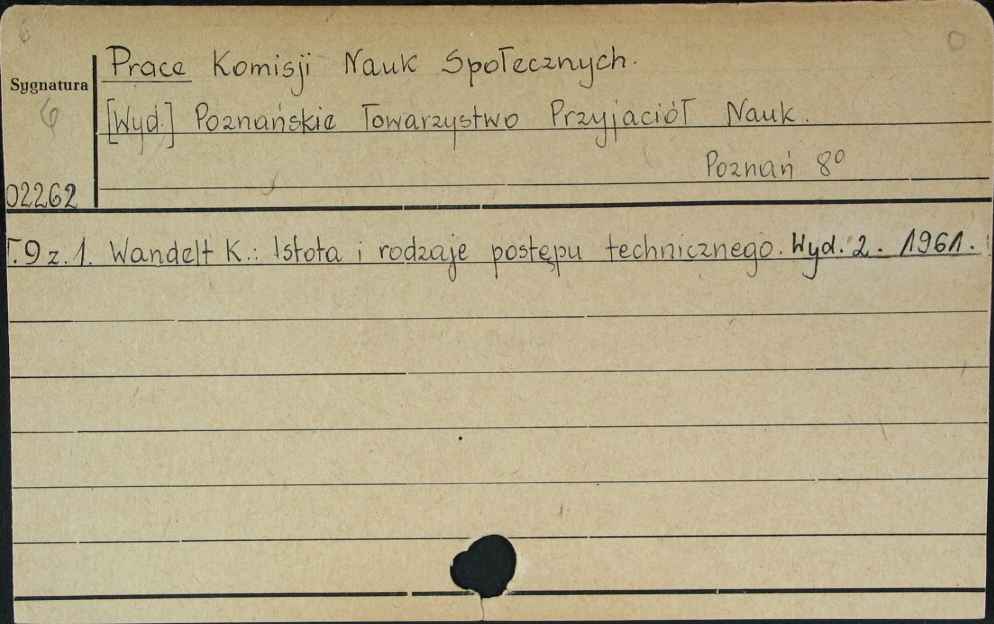 6
0
Prace Komisji Nauk Społecznych.
Sygnatura
6
[Wyd.] Poznańskie Towarzystwo Przyjaciół Nauk.
Poznań 8⁰
02262
T. 9 z. 1. Wandelt K.: Istota i rodzaje postępu technicznego. Wyd. 2. 1961.